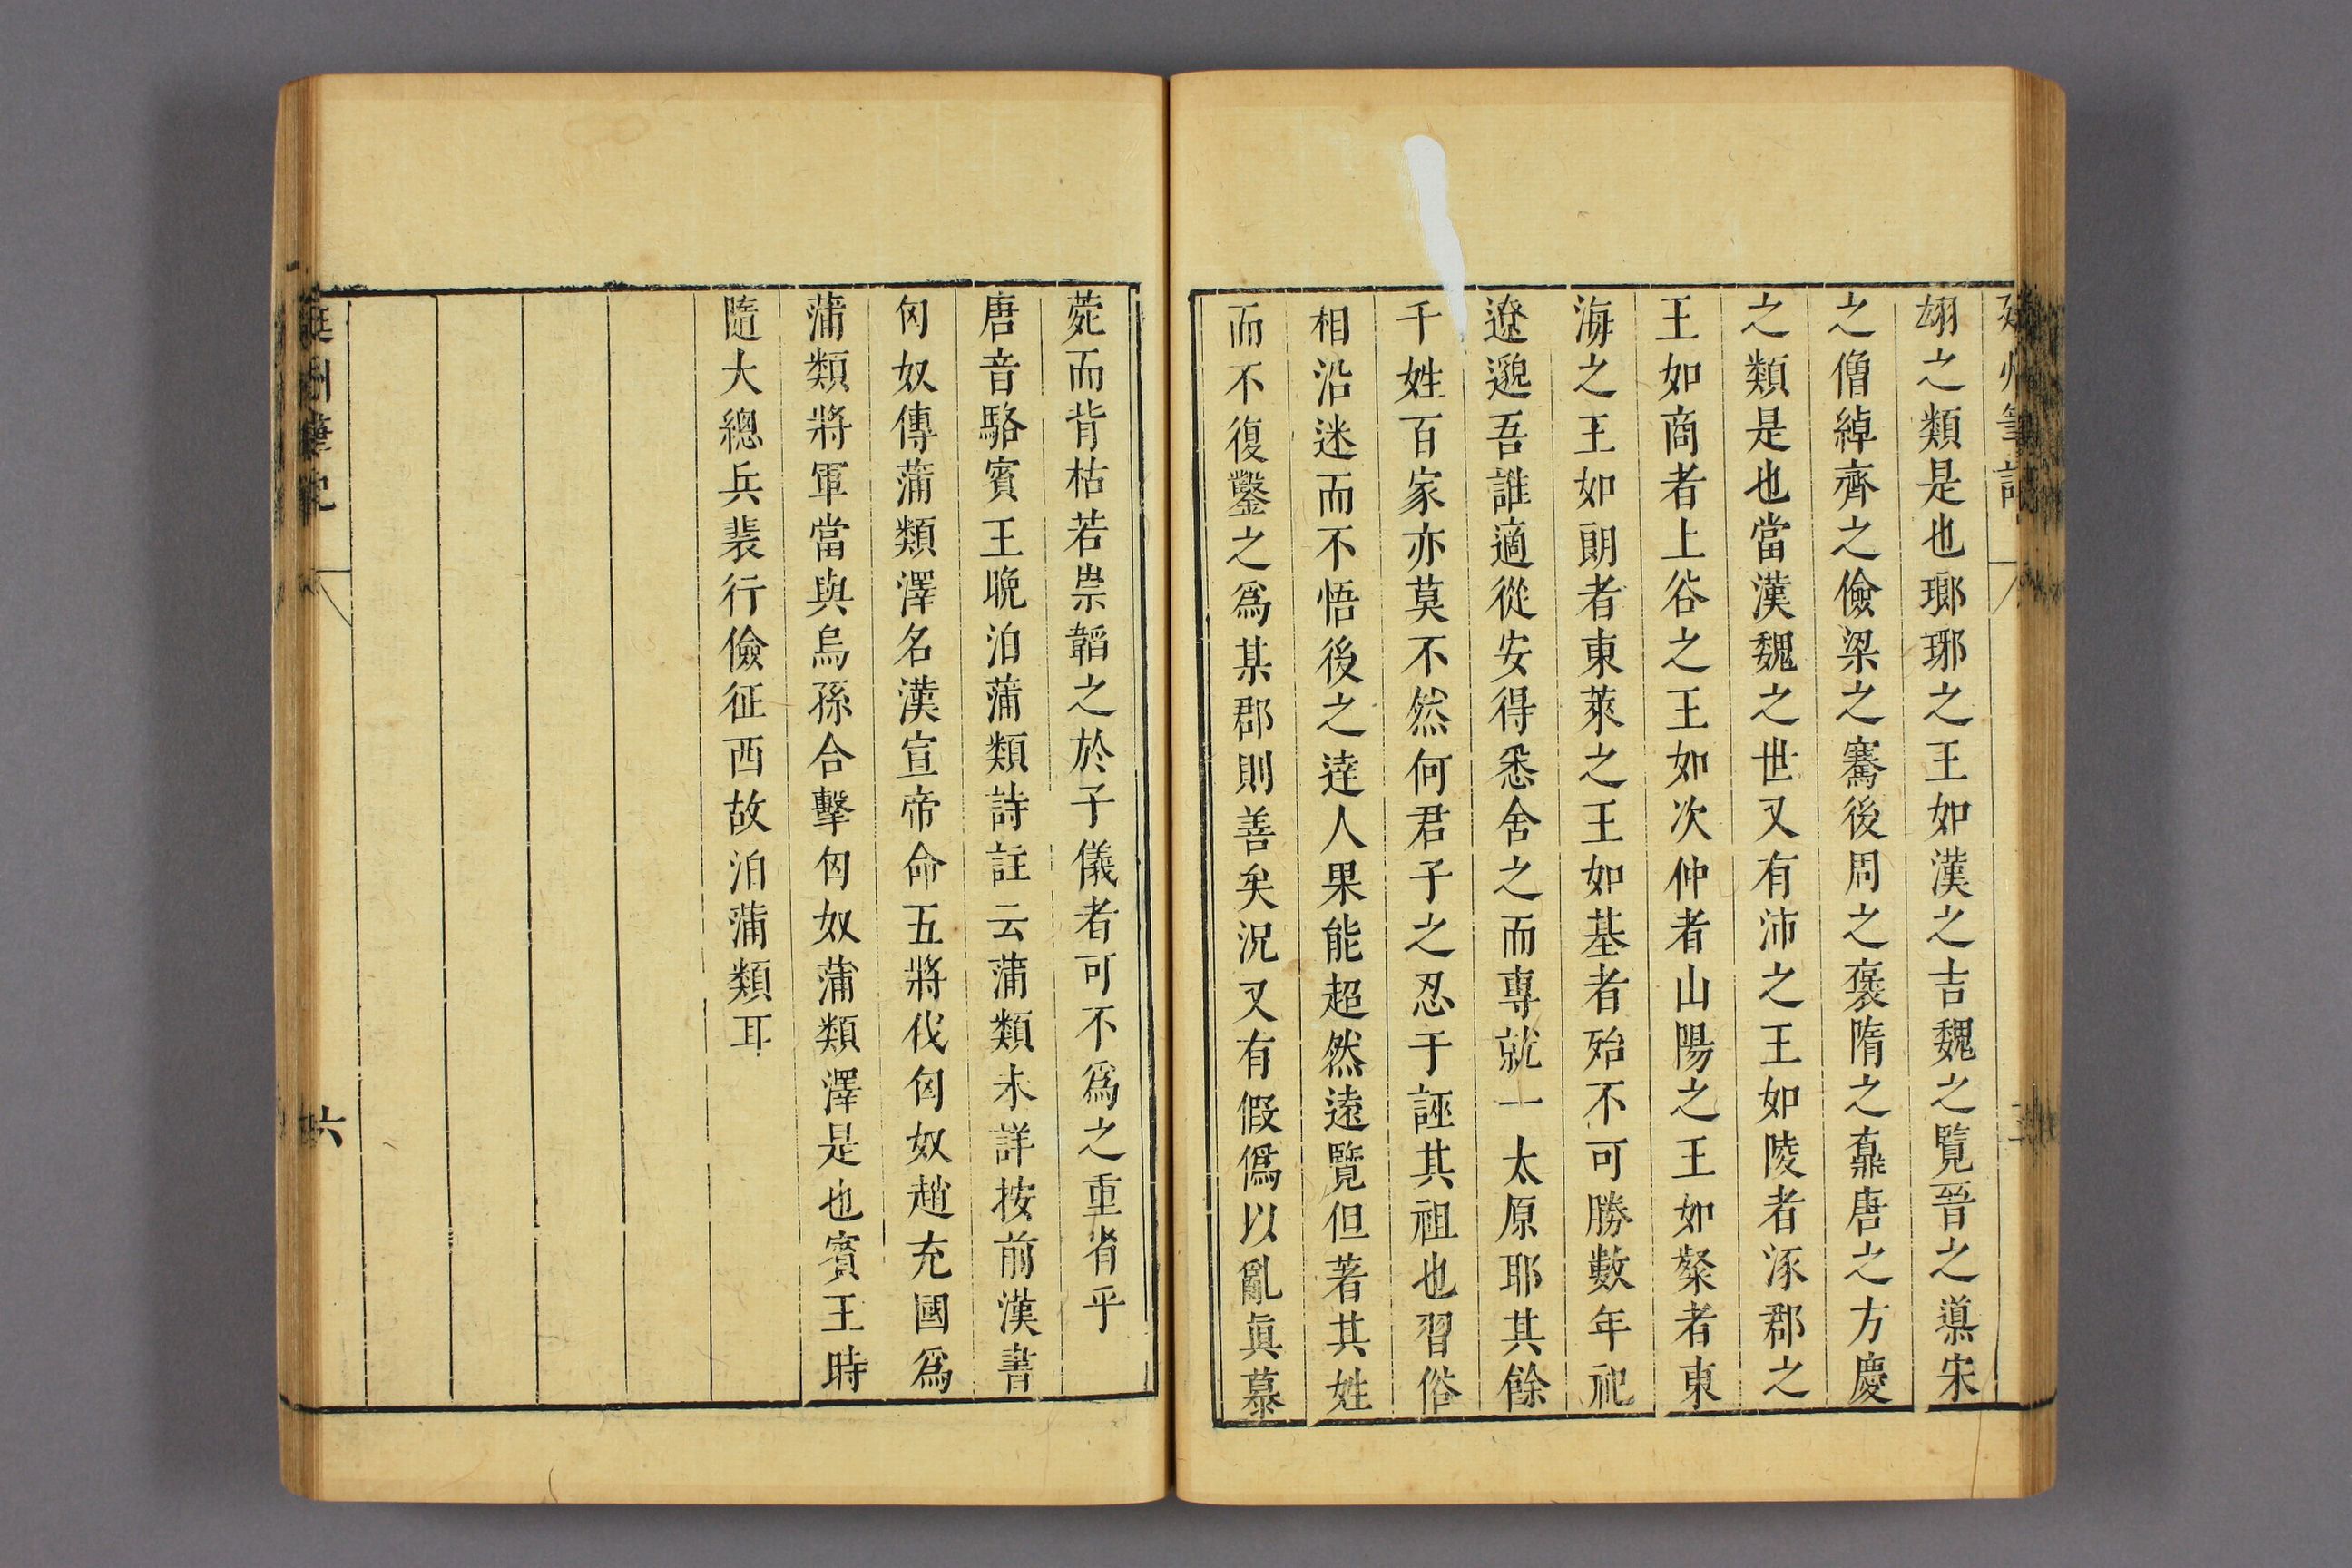 翃之類是也瑯琊之王如漢之吉魏之覽晉之導宋
之僧綽齊之儉梁之騫後周之褒隋之鼒唐之方慶
之類是也當漢魏之世又有沛之王如陵者涿郡之
王如商者上谷之王如次仲者山陽之王如粲者東
海之王如朗者東萊之王如基者殆不可勝數年祀
遼邈吾誰適從安得悉舍之而專就一太原耶其餘
千姓百家亦莫不然何君子之忍于誣其祖也習俗
相沿迷而不悟後之達人果能超然遠覽但著其姓
而不復鑿之為某郡則善矣況又有假偽以亂眞慕
菀而背枯若崇韜之於子儀者可不為之重省乎
唐音駱賓王晚泊蒲類詩註云蒲類未詳按前漢書
匈奴傳蒲類澤名漢宣帝命五將伐匈奴趙充國為
蒲類將軍當與烏孫合擊匈奴蒲類澤是也賓王時
隨大總兵裴行儉征西故泊蒲類耳
六